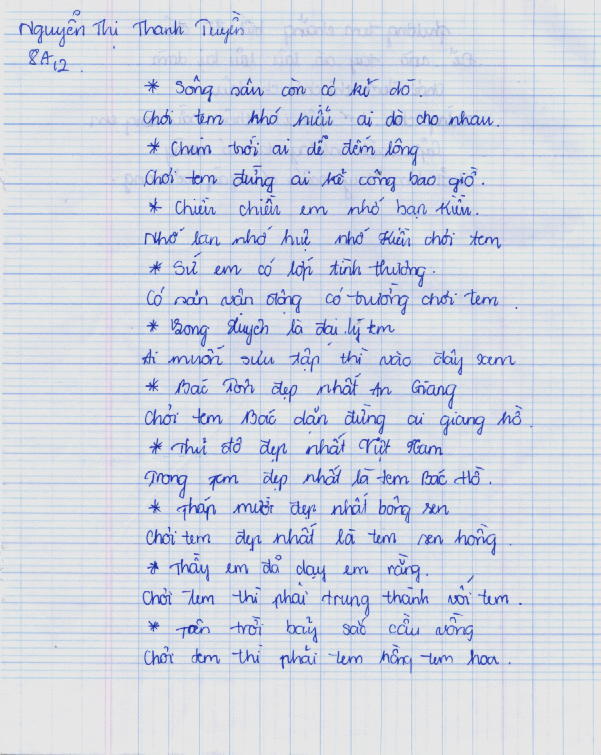 Nguyễn Thị Thanh Tuyền
8A12.
* Sông sâu còn có kẻ dò.
Chơi tem khó hiểu ai dò cho nhau.
* Chim trời ai dễ đếm lông
Chơi tem đừng ai kể công bao giờ.
* Chiều chiều em nhớ bạn Kiều.
Nhớ lan nhớ huệ nhớ Kiều chơi tem
* Sứ em có lớp tình thương.
Có sân vân động có trường chơi tem.
* Bong là đại lý tem
Ai muốn sưu tập thì vào đây xem
* Bác Tôn đẹp nhất An Giang
Chơi tem Bác dặn đừng ai giang hồ.
* Thủ đô đẹp nhất Việt Nam
Trong tem đẹp nhất là tem Bác Hồ.
* Tháp mười đẹp nhất bông sen
Chơi tem đẹp nhất là tem sen hồng.
* Thầy em đã dạy em rằng.
Chơi tem thì phải trung thành với tem.
* Trên trời bảy sắc cầu vồng
Chơi tem thì phải tem hồng tem hoa.